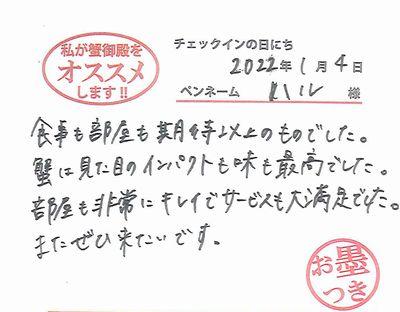 私が蟹御殿を
オススメ
します!!
チェックインの日にち
2022年1月4日
ペンネーム ハル 様
食事も部屋も期待以上のものでした。
蟹は見た目のインパクトも味も最高でした。
部屋も非常にキレイでサービスも大満足でした。
またぜひ来たいです。
お墨
つき